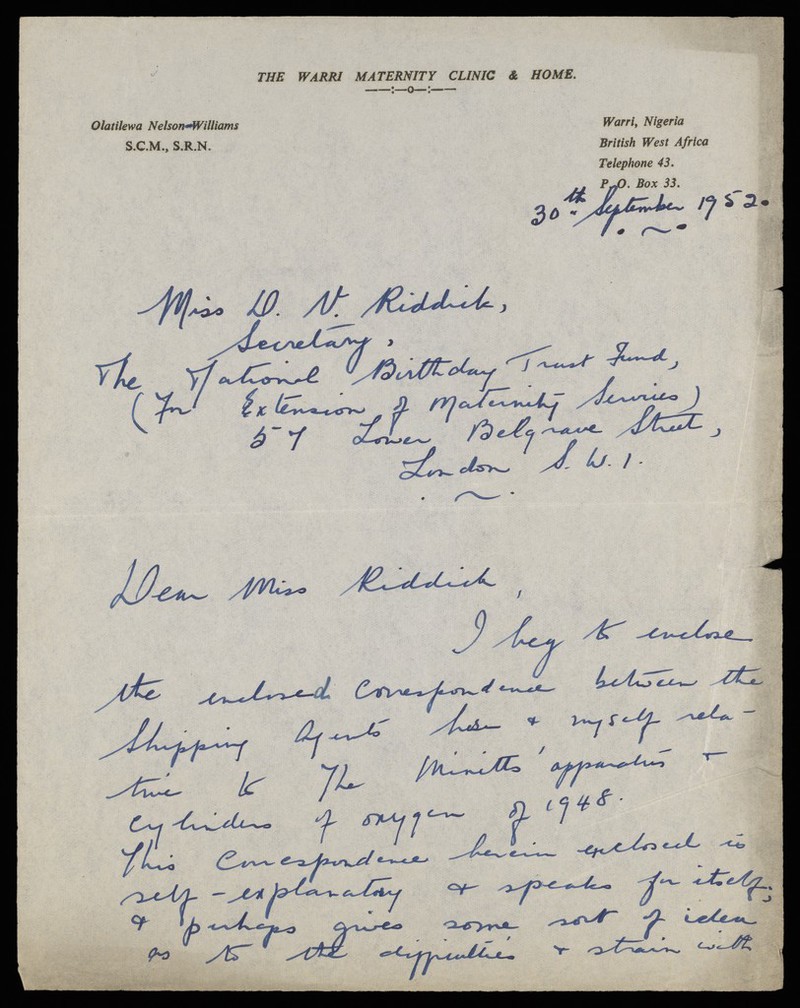 THE WARRI MATERNITY CLINIC & HOME.
——:—o—:——
Olatilewa Nelson-Williams
S.C.M., S.R.N.
Warri, Nigeria
British West Africa
Telephone 43.
P.O. Box 33.
30th September 1952.
Miss D. V. Riddick,
Secretary,
The National Birthday Trust Fund,
(For Extension of Maternity Services)
57 Lower Belgrave Street,
London S.W.1.
Dear Miss Riddick,
I beg to enclose
the enclosed Correspondence between the
Shipping Agents here & myself rela-
tive to The Minitts' apparatus &
Cylinders of oxygen of 1948.
This Correspondence herein enclosed is
self-explanatory & speaks for itself;
& perhaps gives some sort of idea
as to the difficulties & strain with